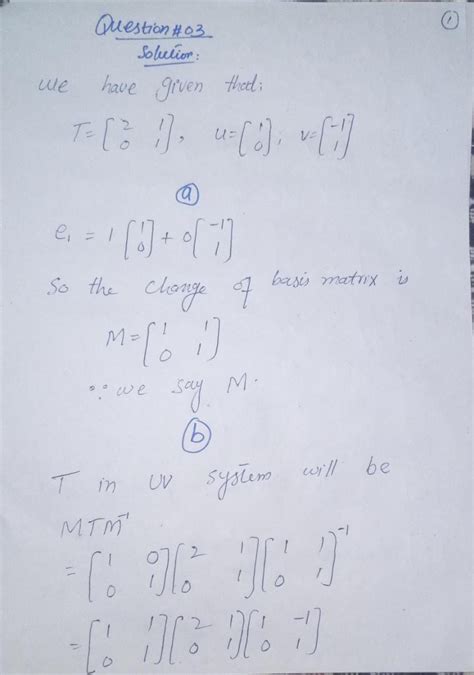 ①
Question#03
Solution:
we have given that:
T=[2 1; 0 1], u=[1; 0]; v=[-1; 1]
ⓐ
e₁ = 1 [1; 0] + 0 [-1; 1]
So the change of basis matrix is
M=[1 1; 0 1]
∵ we say M.
ⓑ
T in UV system will be
MTM⁻¹
=[1 0; 0 1][2 1; 0 1][1 1; 0 1]⁻¹
=[1 1; 0 1][2 1; 0 1][1 -1; 0 1]